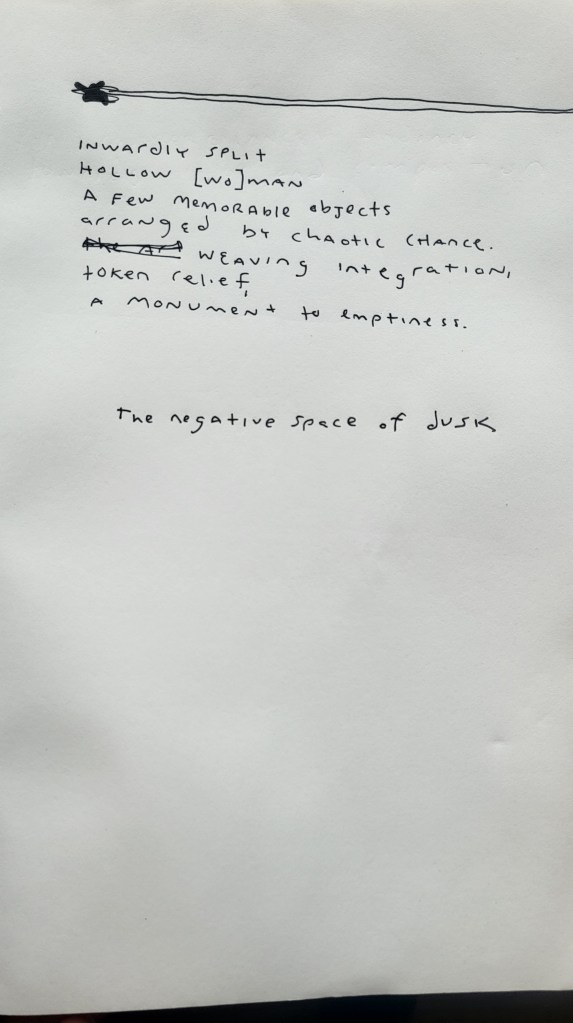 INWARDLY SPLIT
HOLLOW [WO]MAN
A FEW MEMORABLE objects
arranged by CHAOTIC CHANCE.
WEAVING integration,
token relief,
A MONUMENT to emptiness.
The negative space of dusk